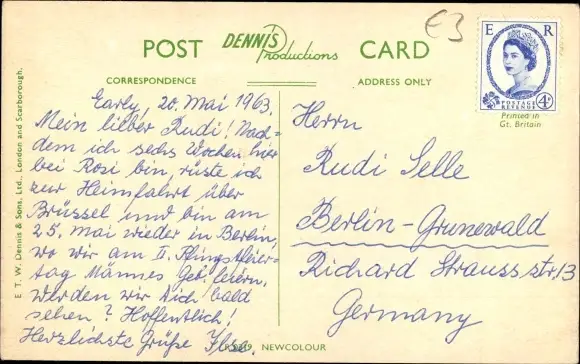 POST DENNIS Productions CARD
£3
E R
POSTAGE REVENUE
4D
Printed in
Gt. Britain
CORRESPONDENCE
ADDRESS ONLY
E. T. W. Dennis & Sons, Ltd., London and Scarborough.
Early, 20. Mai 1963.
Mein lieber Rudi! Nach=
dem ich sechs Wochen hier
bei Rosi bin, rüste ich
zur Heimfahrt über
Brüssel und bin am
25. Mai wieder in Berlin,
wo wir am II. Pfingstfeier-
tag Mannes Geb. feiern.
Werden wir Dich bald
sehen? Hoffentlich!
Herzlichste Grüße Ilse.
Herrn
Rudi Selle
Berlin-Grunewald
Richard Strauss str. 13
Germany
NEWCOLOUR